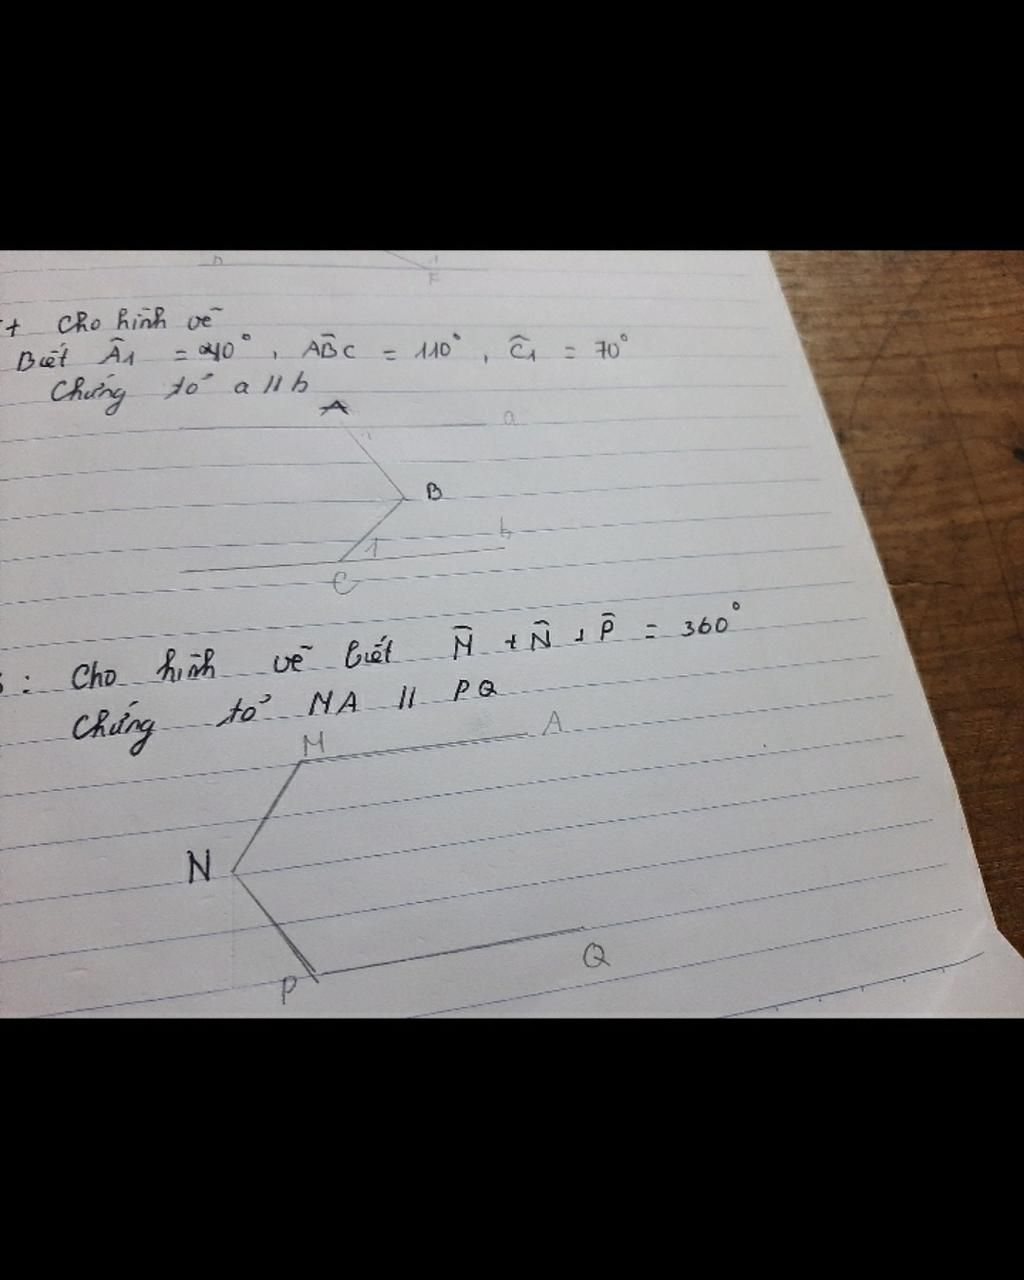 + Cho hình vẽ
Biết Â1 = 40°, AB̂C = 110°, Ĉ1 = 70°
Chứng tỏ a // b
A
a
B
b
1
C
: Cho hình vẽ biết M̂ + N̂ + P̂ = 360°
Chứng tỏ MA // PQ
M
A
N
Q
P